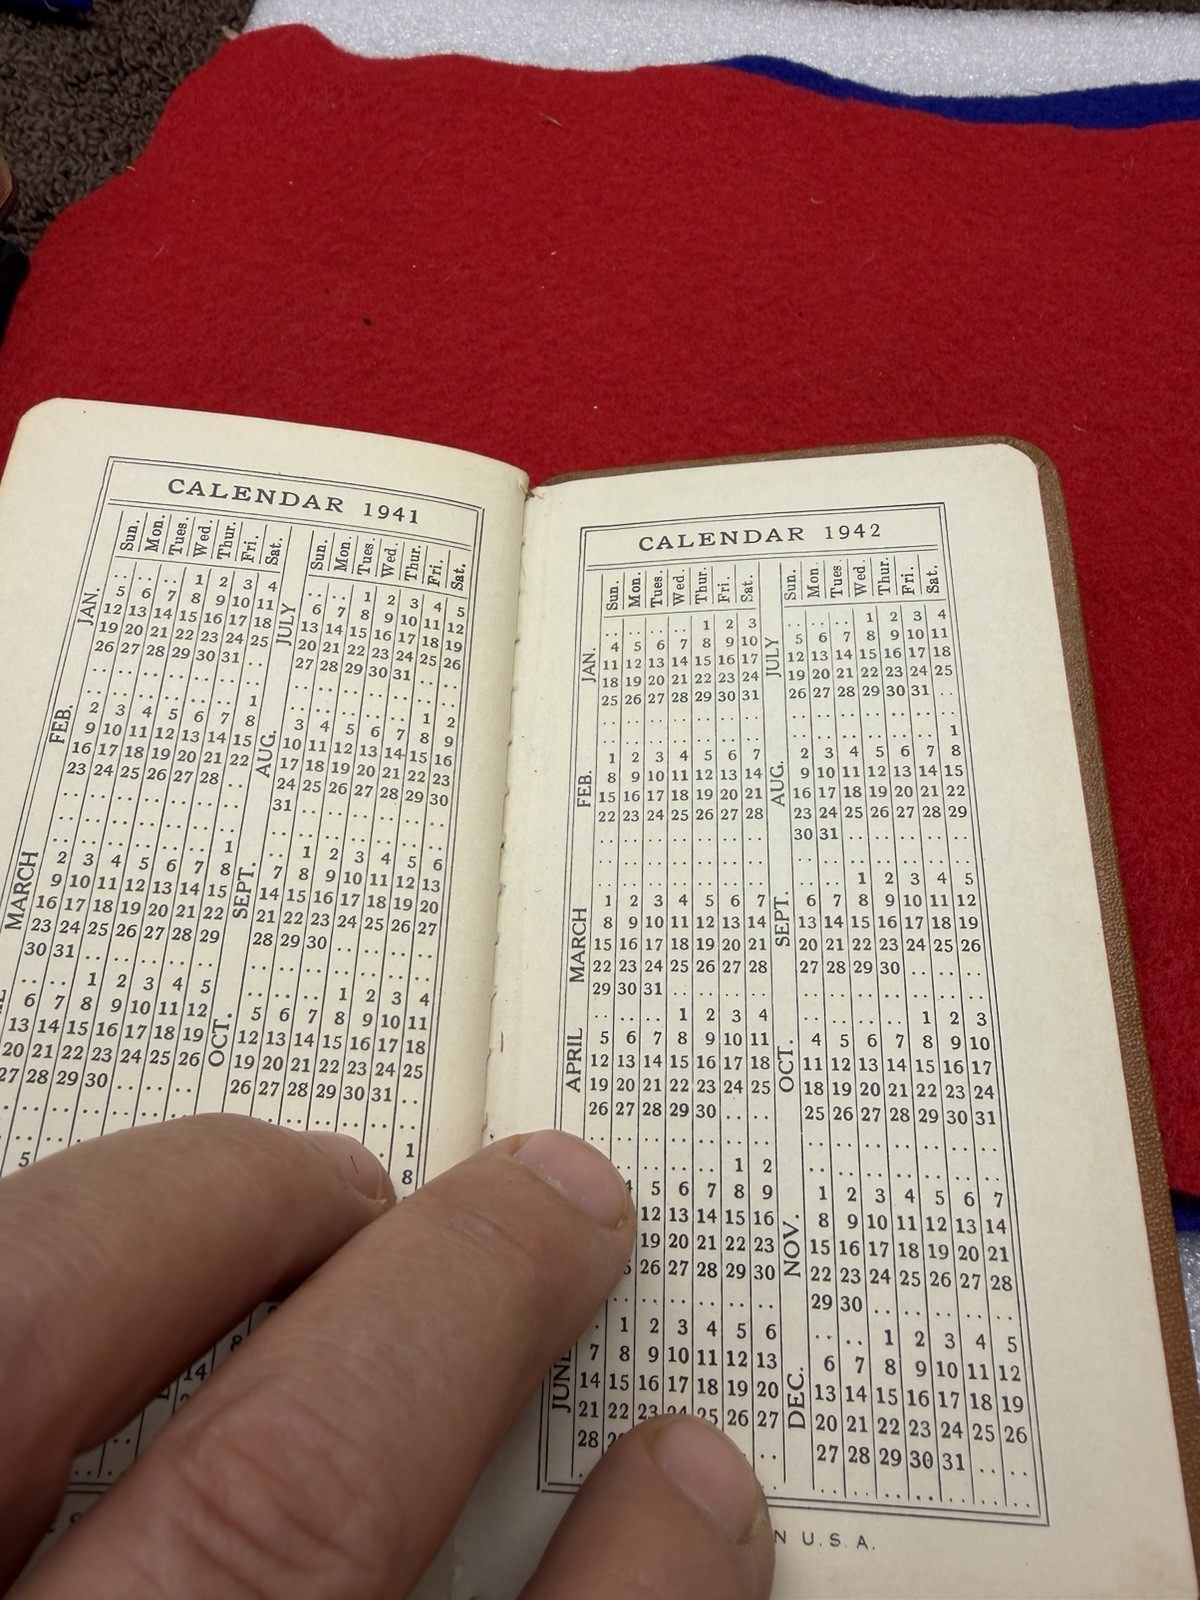 CALENDAR 1941
Sun. Mon. Tues. Wed. Thur. Fri. Sat.
JAN.
.. .. .. 1 2 3 4
5 6 7 8 9 10 11
12 13 14 15 16 17 18
19 20 21 22 23 24 25
26 27 28 29 30 31 ..
.. .. .. .. .. .. ..
FEB.
.. .. .. .. .. .. 1
2 3 4 5 6 7 8
9 10 11 12 13 14 15
16 17 18 19 20 21 22
23 24 25 26 27 28 ..
.. .. .. .. .. .. ..
MARCH
.. .. .. .. .. .. 1
2 3 4 5 6 7 8
9 10 11 12 13 14 15
16 17 18 19 20 21 22
23 24 25 26 27 28 29
30 31 .. .. .. .. ..
.. .. 1 2 3 4 5
6 7 8 9 10 11 12
13 14 15 16 17 18 19
20 21 22 23 24 25 26
27 28 29 30 .. .. ..
.. .. .. .. .. .. ..
5
Sun. Mon. Tues. Wed. Thur. Fri. Sat.
JULY
.. .. 1 2 3 4 5
6 7 8 9 10 11 12
13 14 15 16 17 18 19
20 21 22 23 24 25 26
27 28 29 30 31 .. ..
.. .. .. .. .. .. ..
AUG.
.. .. .. .. .. 1 2
3 4 5 6 7 8 9
10 11 12 13 14 15 16
17 18 19 20 21 22 23
24 25 26 27 28 29 30
31 .. .. .. .. .. ..
SEPT.
.. 1 2 3 4 5 6
7 8 9 10 11 12 13
14 15 16 17 18 19 20
21 22 23 24 25 26 27
28 29 30 .. .. .. ..
.. .. .. .. .. .. ..
OCT.
.. .. .. 1 2 3 4
5 6 7 8 9 10 11
12 13 14 15 16 17 18
19 20 21 22 23 24 25
26 27 28 29 30 31 ..
.. .. .. .. .. .. ..
1
8
14
CALENDAR 1942
Sun. Mon. Tues. Wed. Thur. Fri. Sat.
JAN.
.. .. .. .. 1 2 3
4 5 6 7 8 9 10
11 12 13 14 15 16 17
18 19 20 21 22 23 24
25 26 27 28 29 30 31
.. .. .. .. .. .. ..
FEB.
1 2 3 4 5 6 7
8 9 10 11 12 13 14
15 16 17 18 19 20 21
22 23 24 25 26 27 28
.. .. .. .. .. .. ..
.. .. .. .. .. .. ..
MARCH
1 2 3 4 5 6 7
8 9 10 11 12 13 14
15 16 17 18 19 20 21
22 23 24 25 26 27 28
29 30 31 .. .. .. ..
APRIL
.. .. .. 1 2 3 4
5 6 7 8 9 10 11
12 13 14 15 16 17 18
19 20 21 22 23 24 25
26 27 28 29 30 .. ..
.. .. .. .. .. .. ..
.. .. .. .. 1 2
5 6 7 8 9
12 13 14 15 16
19 20 21 22 23
26 27 28 29 30
.. .. .. .. .. ..
JUNE
.. 1 2 3 4 5 6
7 8 9 10 11 12 13
14 15 16 17 18 19 20
21 22 23 24 25 26 27
28
Sun. Mon Tues. Wed. Thur. Fri. Sat.
JULY
.. .. .. 1 2 3 4
5 6 7 8 9 10 11
12 13 14 15 16 17 18
19 20 21 22 23 24 25
26 27 28 29 30 31 ..
.. .. .. .. .. .. ..
AUG.
.. .. .. .. .. .. 1
2 3 4 5 6 7 8
9 10 11 12 13 14 15
16 17 18 19 20 21 22
23 24 25 26 27 28 29
30 31 .. .. .. .. ..
SEPT.
.. .. 1 2 3 4 5
6 7 8 9 10 11 12
13 14 15 16 17 18 19
20 21 22 23 24 25 26
27 28 29 30 .. .. ..
.. .. .. .. .. .. ..
OCT.
.. .. .. .. 1 2 3
4 5 6 7 8 9 10
11 12 13 14 15 16 17
18 19 20 21 22 23 24
25 26 27 28 29 30 31
.. .. .. .. .. .. ..
NOV.
1 2 3 4 5 6 7
8 9 10 11 12 13 14
15 16 17 18 19 20 21
22 23 24 25 26 27 28
29 30 .. .. .. .. ..
DEC.
.. .. 1 2 3 4 5
6 7 8 9 10 11 12
13 14 15 16 17 18 19
20 21 22 23 24 25 26
27 28 29 30 31 .. ..
.. .. .. .. .. .. ..
N U.S.A.